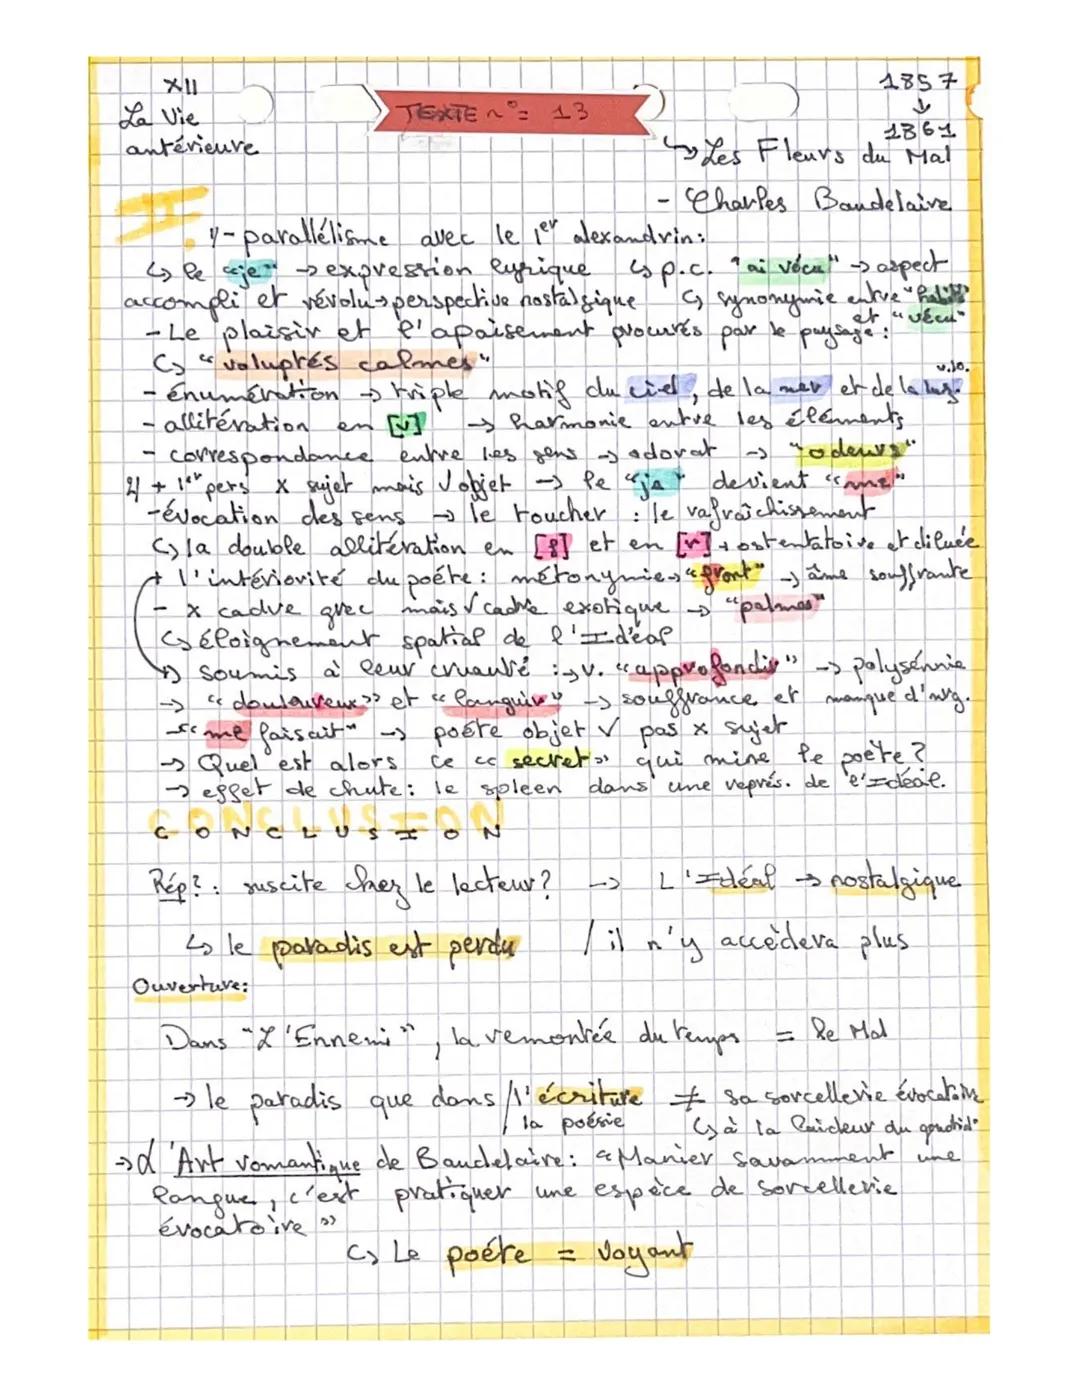 XII
La Vie
antérieure
TEXTE n°= 13
1857
↓
1861
↳ Les Fleurs du Mal
- Charles Baudelaire
II.
1/- parallélisme avec le 1er alexandrin:
↳ le "je" → expression lyrique ↳ p.c. "ai vécu" → aspect
accompli et révolu → perspective nostalgique ↳ synonymie entre "habité"
et "vécu"
- Le plaisir et l'apaisement procurés par le paysage:
↳ "voluptés calmes"
v.10.
- énumération → triple motif du ciel, de la mer et de la
- allitération en [v] → harmonie entre les éléments
- correspondance entre les sens → odorat → "odeurs"
2/ + 1er pers x sujet mais √ objet → le "je" devient "me"
- évocation des sens → le toucher : le rafraîchissement
↳ la double allitération en [f] et en [r] → ostentatoire et diluée
+ l'intériorité du poète: métonymie → "front" → âme souffrante
- x cadre grec mais √ cadre exotique → "palmes"
↳ éloignement spatial de l'Idéal
→ soumis à leur cruauté : → v. "approfondir" → polysémie
→ "douloureux" et "languir" → souffrance et manque d'nrg.
→ "me faisait" → poète objet √ pas x sujet
→ Quel est alors ce "secret" qui mine le poète ?
→ effet de chute: le spleen dans une représ. de l'Idéal.
CONCLUSION
Rép? : suscite chez le lecteur? → L'Idéal → nostalgique
↳ le paradis est perdu / il n'y accèdera plus
Ouverture:
Dans "L'Ennemi", la remontée du temps = le Mal
→ le paradis que dans / l'écriture ≠ sa sorcellerie évocatoire
la poésie ↳ à la laideur du quotid°
→ L'Art romantique de Baudelaire: "Manier savamment une
langue, c'est pratiquer une espèce de sorcellerie
évocatoire"
↳ Le poète = voyant